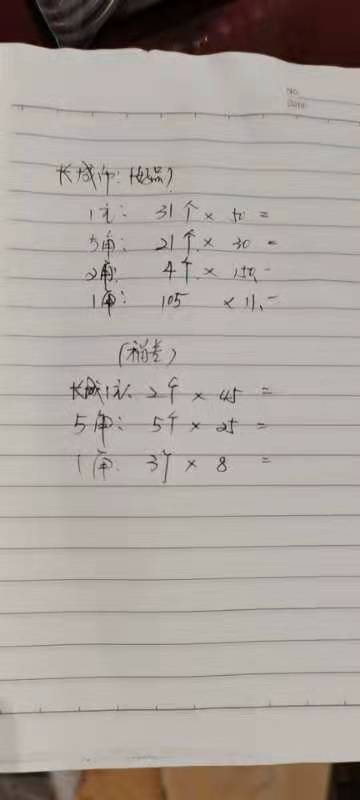 NO.
DATE
长城币：（好品）
1元： 31个 × 50 =
5角： 21个 × 30 =
2角： 4个 × 150 -
1角： 105 × 11 -
（稍差）
长城1元： 2个 × 45 =
5角： 5个 × 25 =
1角： 3个 × 8 =